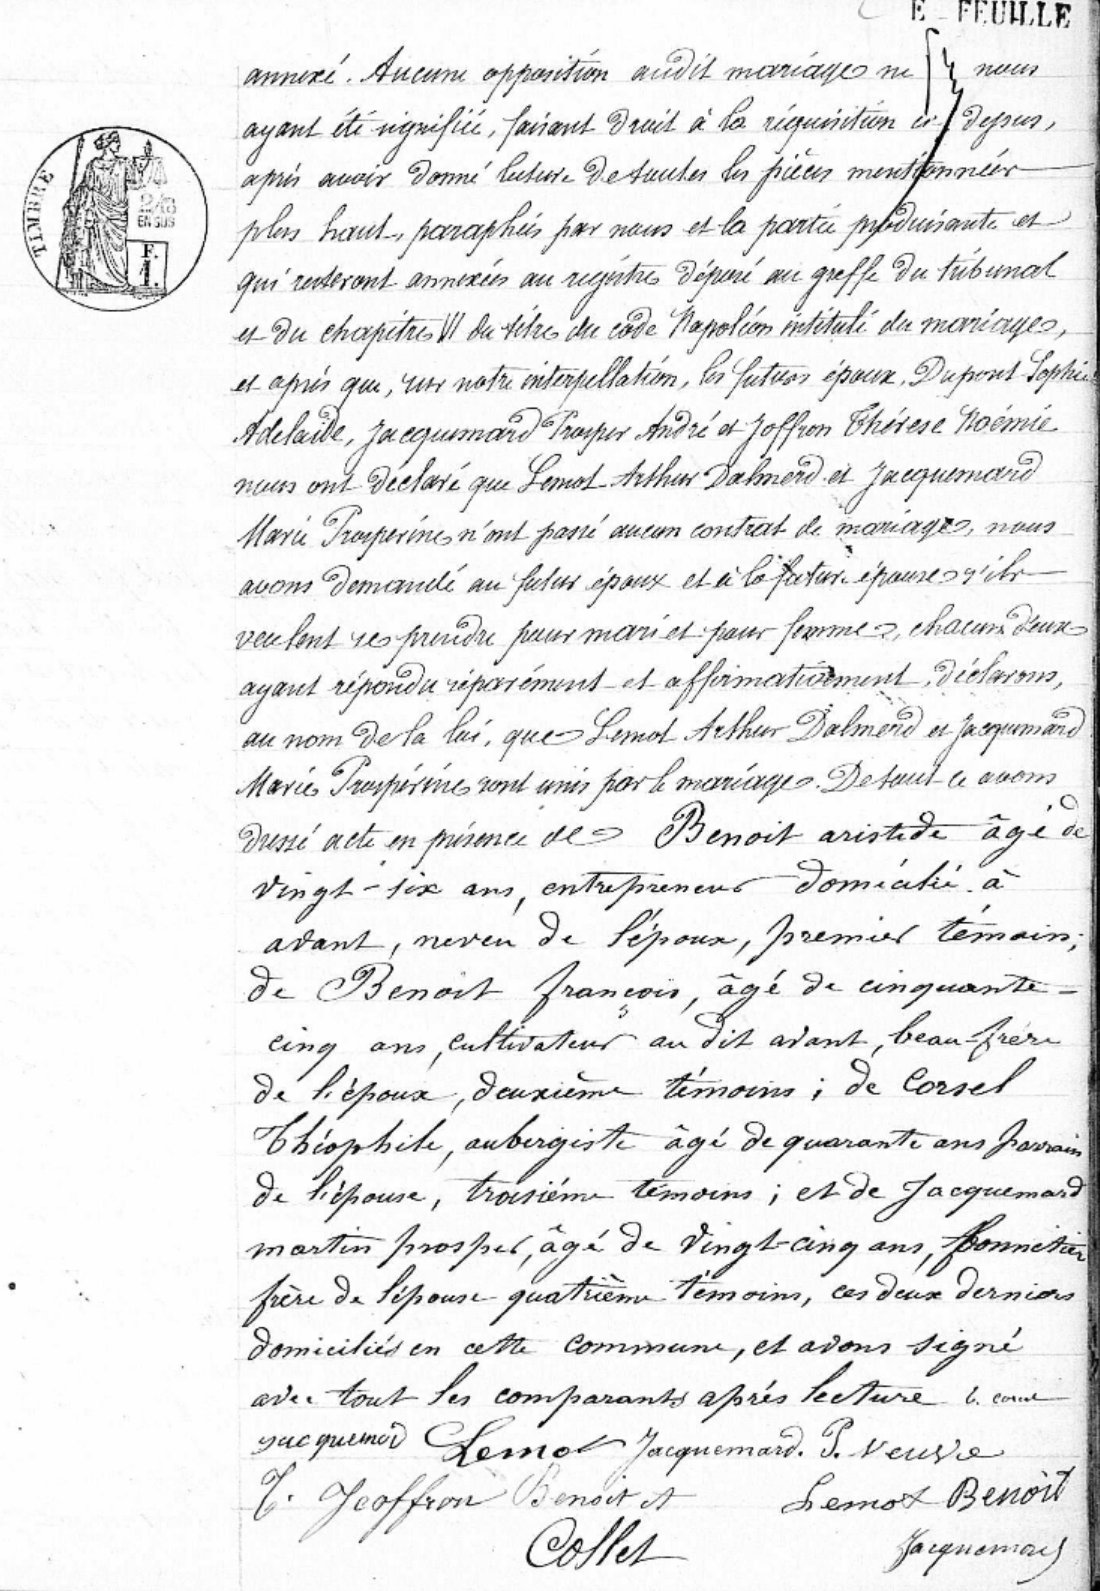 E FEUILLE
TIMBRE
2/10
EN SUS
F.
1.
annexé. Aucune opposition audit mariage ne nous
ayant été signifiée, faisant droit à la réquisition ci-depus,
après avoir donné lecture de toutes les pièces mentionnées
plus haut, paraphés par nous et la partie produisante et
qui resteront annexées au registre déposé au greffe du tribunal
et du chapitre VI du titre du code Napoléon intitulé du mariage,
et après que, sur notre interpellation, les futurs époux, Dupont Sophie
Adelaïde, Jacquemard Prosper André et Joffron Thérèse Noémie
nous ont déclaré que Lemot Arthur Dalmerd et Jacquemard
Marie Prospérine n'ont passé aucun contrat de mariage, nous
avons demandé au futur époux et à la future épouse s'ils
veulent se prendre pour mari et pour femme, chacun d'eux
ayant répondu séparément et affirmativement, déclarons,
au nom de la loi, que Lemot Arthur Dalmerd et Jacquemard
Marie Prospérine sont unis par le mariage. De tout ce avons
dressé acte en présence de Benoit aristide âgé de
vingt-six ans, entrepreneur domicilié à
avant, neveu de l'époux, premier témoin;
de Benoit françois, âgé de cinquante-
cinq ans, cultivateur au dit avant, beau-frère
de l'époux, deuxième témoins; de Corsel
Théophile, aubergiste âgé de quarante ans parrain
de l'épouse, troisième témoins; et de Jacquemard
martin prosper, âgé de vingt-cinq ans, bonnetier
frère de l'épouse quatrième témoins, ces deux derniers
domiciliés en cette commune, et avons signé
avec tout les comparants après lecture
Jacquemard Lemot Jacquemard. P. veuve
T. Jeoffron Benoit A Lemot Benoît
Collet Jacquemard